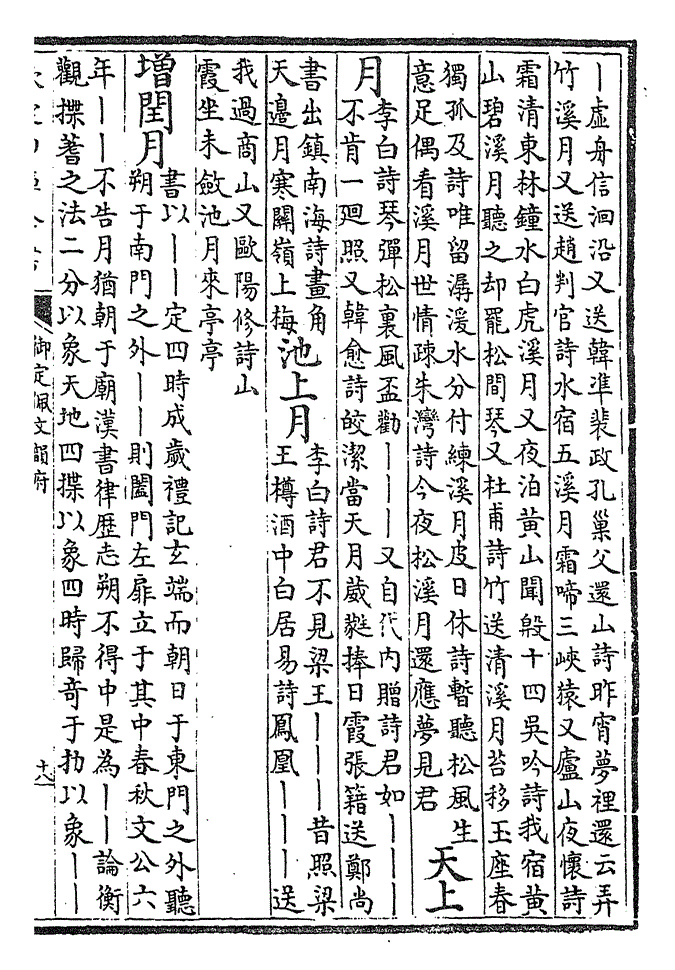 丨虚舟信洄沿又送韓準裴政孔巢父還山詩昨宵夢裡還云弄
竹溪月又送趙判官詩水宿五溪月霜啼三峽猿又廬山夜懷詩
霜清東林鐘水白虎溪月又夜泊黄山聞殷十四吳吟詩我宿黄
山碧溪月聽之却罷松間琴又杜甫詩竹送清溪月苔移玉座春
獨孤及詩唯留潺湲水分付練溪月皮日休詩暫聽松風生
意足偶看溪月世情疎朱灣詩今夜松溪月還應夢見君
天上
月
李白詩琴彈松裏風盃勸丨丨丨又自代内贈詩君如丨丨丨
不肯一廻照又韓愈詩皎潔當天月葳蕤捧日霞張籍送鄭尚
書出鎮南海詩畫角
天邊月寒關嶺上梅
池上月
李白詩君不見梁王丨丨丨昔照梁
王樽酒中白居易詩鳳凰丨丨丨送
我過商山又歐陽修詩山
霞坐未斂池月來亭亭
增閏月
書以丨丨定四時成歲禮記玄端而朝日于東門之外聽
朔于南門之外丨丨則闔門左扉立于其中春秋文公六
年丨丨不告月猶朝于廟漢書律歷志朔不得中是為丨丨論衡
觀揲蓍之法二分以象天地四揲以象四時歸奇于扐以象丨丨
御定佩文韻府
十八